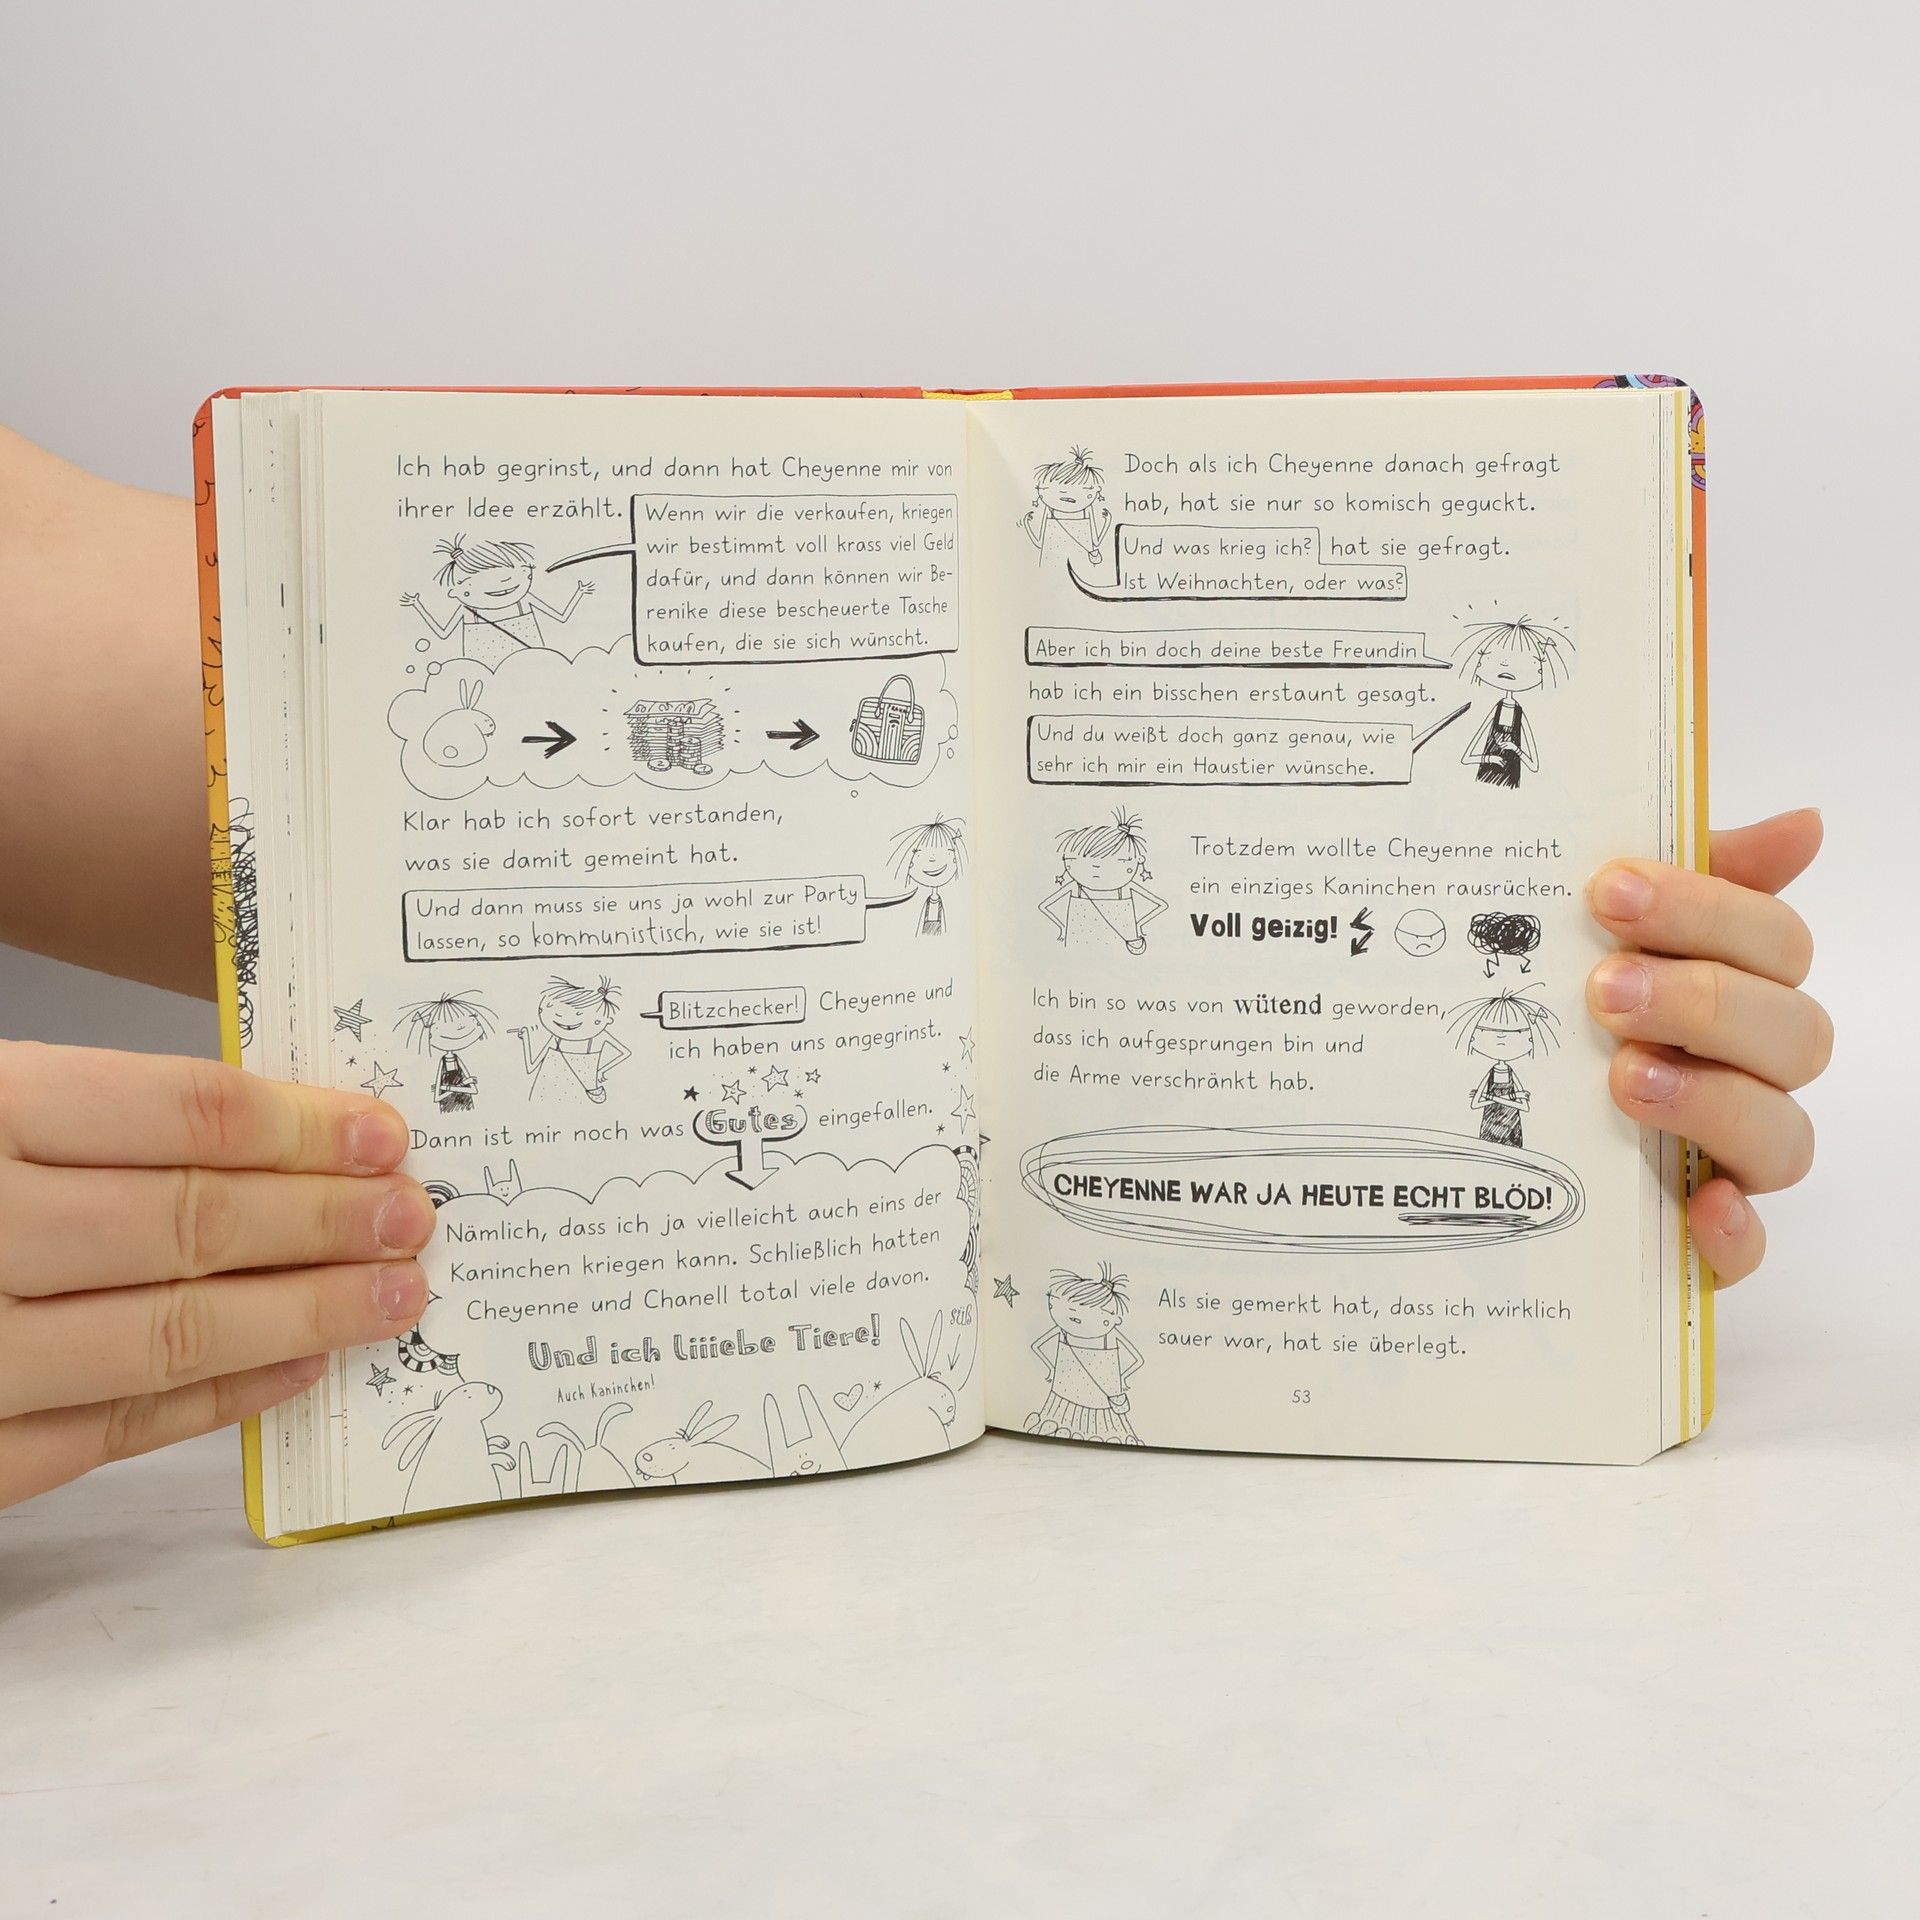 Ich hab gegrinst, und dann hat Cheyenne mir von
ihrer Idee erzählt.
Wenn wir die verkaufen, kriegen
wir bestimmt voll krass viel Geld
dafür, und dann können wir Be-
renike diese bescheuerte Tasche
kaufen, die sie sich wünscht.
Klar hab ich sofort verstanden,
was sie damit gemeint hat.
Und dann muss sie uns ja wohl zur Party
lassen, so kommunistisch, wie sie ist!
Blitzchecker! Cheyenne und
ich haben uns angegrinst.
Dann ist mir noch was Gutes eingefallen.
Nämlich, dass ich ja vielleicht auch eins der
Kaninchen kriegen kann. Schließlich hatten
Cheyenne und Chanell total viele davon.
süß
Und ich liiiebe Tiere!
Auch Kaninchen!
Doch als ich Cheyenne danach gefragt
hab, hat sie nur so komisch geguckt.
Und was krieg ich? hat sie gefragt.
Ist Weihnachten, oder was?
Aber ich bin doch deine beste Freundin
hab ich ein bisschen erstaunt gesagt.
Und du weißt doch ganz genau, wie
sehr ich mir ein Haustier wünsche.
Trotzdem wollte Cheyenne nicht
ein einziges Kaninchen rausrücken.
Voll geizig!
Ich bin so was von wütend geworden,
dass ich aufgesprungen bin und
die Arme verschränkt hab.
CHEYENNE WAR JA HEUTE ECHT BLÖD!
Als sie gemerkt hat, dass ich wirklich
sauer war, hat sie überlegt.
53